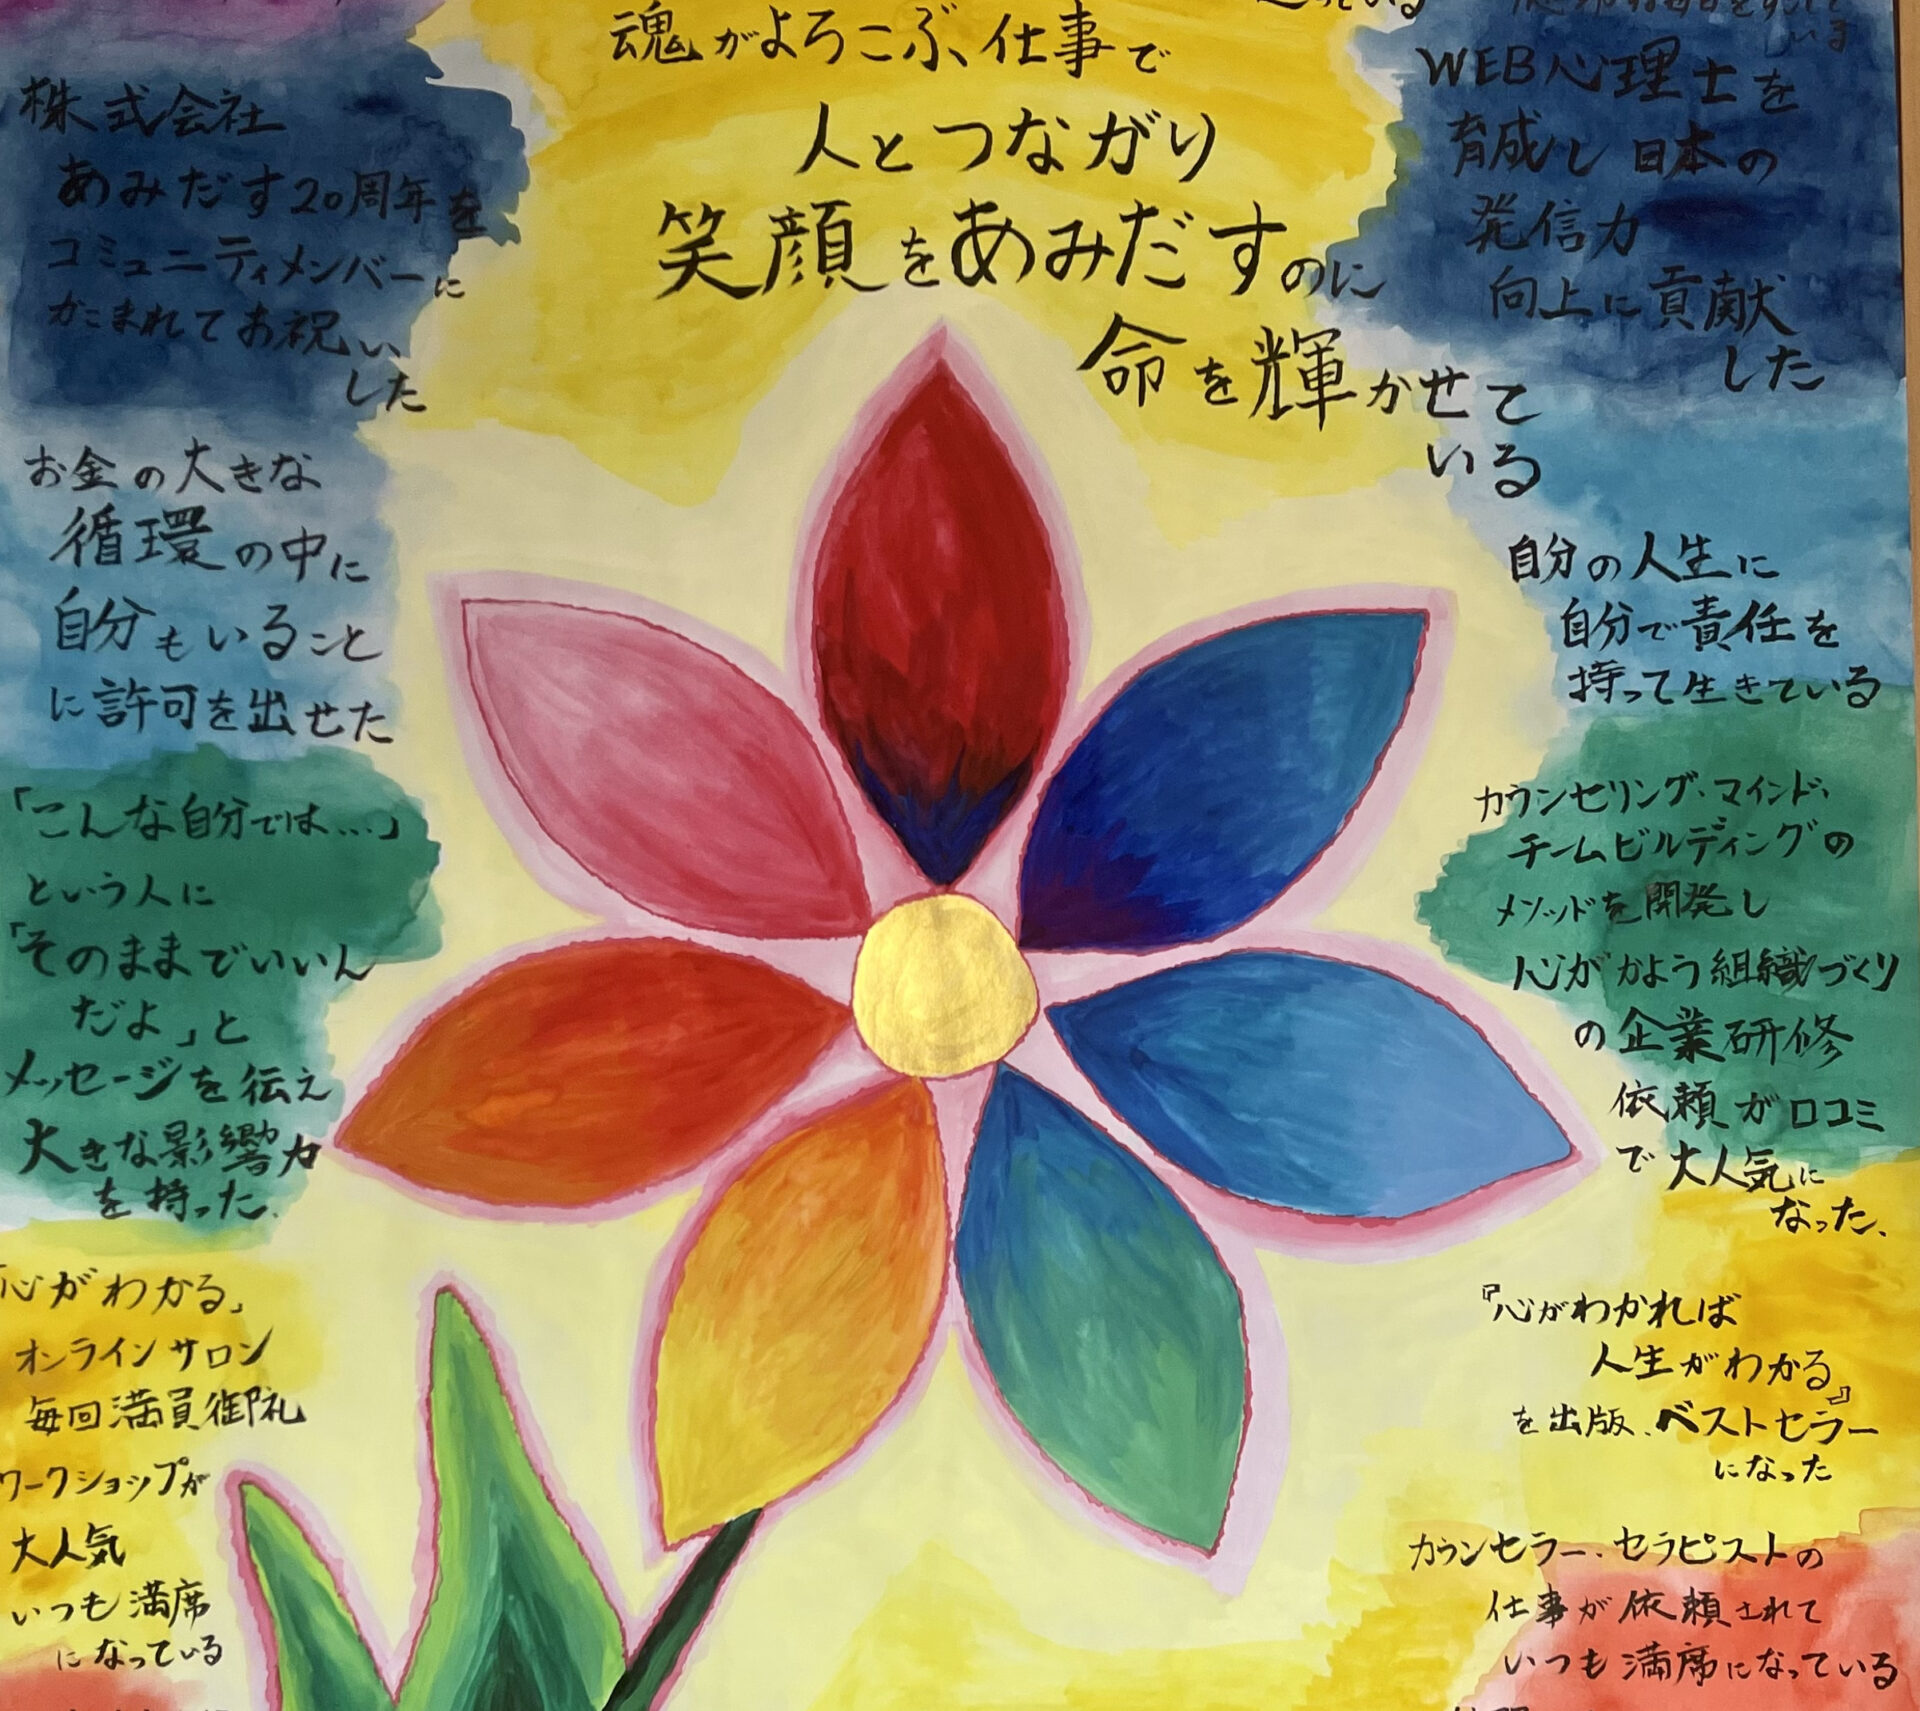 魂がよろこぶ、仕事で
人とつながり
笑顔をあみだすのに
命を輝かせて
いる
株式会社
あみだす20周年を
コミュニティメンバーに
かこまれてお祝い
した
お金の大きな
循環の中に
自分もいること
に許可を出せた
「こんな自分では…」
という人に
「そのままでいいん
だよ」と
メッセージを伝え
大きな影響力
を持った.
「心がわかる」
オンラインサロン
毎回満員御礼
ワークショップが
大人気
いつも満席
になっている
っている
いる
WEB心理士を
育成し日本の
発信力
向上に貢献
した
自分の人生に
自分で責任を
持って生きている
カウンセリング・マインド・
チームビルディングの
メソッドを開発し
心がかよう組織づくり
の企業研修
依頼が口コミ
で大人気に
なった、
『心がわかれば
人生がわかる』
を出版、ベストセラー
になった
カウンセラー・セラピストの
仕事が依頼されて
いつも満席になっている